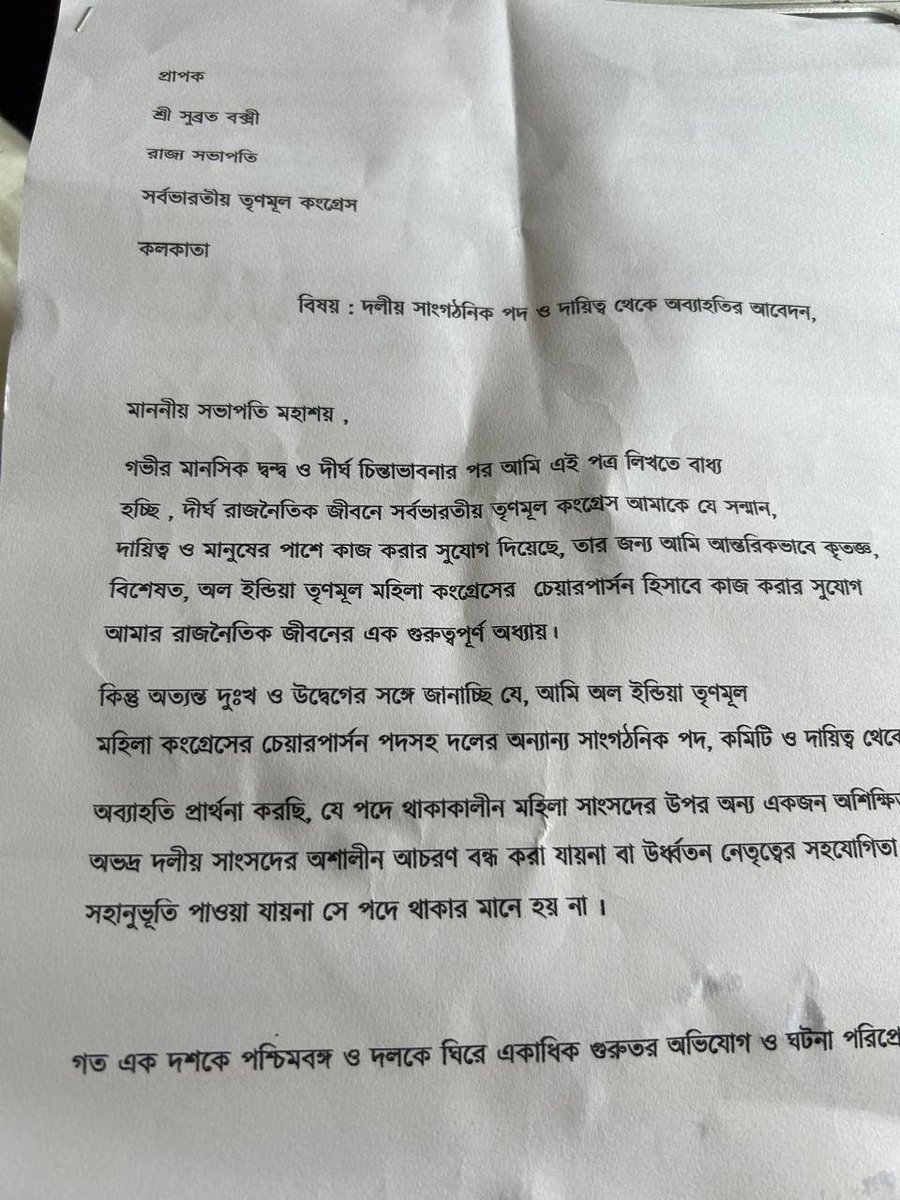 প্রাপক
শ্রী সুব্রত বক্সী
রাজ্য সভাপতি
সর্বভারতীয় তৃণমূল কংগ্রেস
কলকাতা
বিষয় : দলীয় সাংগঠনিক পদ ও দায়িত্ব থেকে অব্যাহতির আবেদন,
মাননীয় সভাপতি মহাশয় ,
গভীর মানসিক দ্বন্দ্ব ও দীর্ঘ চিন্তাভাবনার পর আমি এই পত্র লিখতে বাধ্য
হচ্ছি , দীর্ঘ রাজনৈতিক জীবনে সর্বভারতীয় তৃণমূল কংগ্রেস আমাকে যে সন্মান,
দায়িত্ব ও মানুষের পাশে কাজ করার সুযোগ দিয়েছে, তার জন্য আমি আন্তরিকভাবে কৃতজ্ঞ,
বিশেষত, অল ইন্ডিয়া তৃণমূল মহিলা কংগ্রেসের চেয়ারপার্সন হিসাবে কাজ করার সুযোগ
আমার রাজনৈতিক জীবনের এক গুরুত্বপূর্ণ অধ্যায়।
কিন্তু অত্যন্ত দুঃখ ও উদ্বেগের সঙ্গে জানাচ্ছি যে, আমি অল ইন্ডিয়া তৃণমূল
মহিলা কংগ্রেসের চেয়ারপার্সন পদসহ দলের অন্যান্য সাংগঠনিক পদ, কমিটি ও দায়িত্ব থেকে
অব্যাহতি প্রার্থনা করছি, যে পদে থাকাকালীন মহিলা সাংসদের উপর অন্য একজন
অভদ্র দলীয় সাংসদের অশালীন আচরণ বন্ধ করা যায়না বা উর্ধ্বতন নেতৃত্বের সহযোগিতা
সহানুভূতি পাওয়া যায়না সে পদে থাকার মানে হয় না ।
গত এক দশকে পশ্চিমবঙ্গ ও দলকে ঘিরে একাধিক গুরুতর অভিযোগ ও ঘটনা